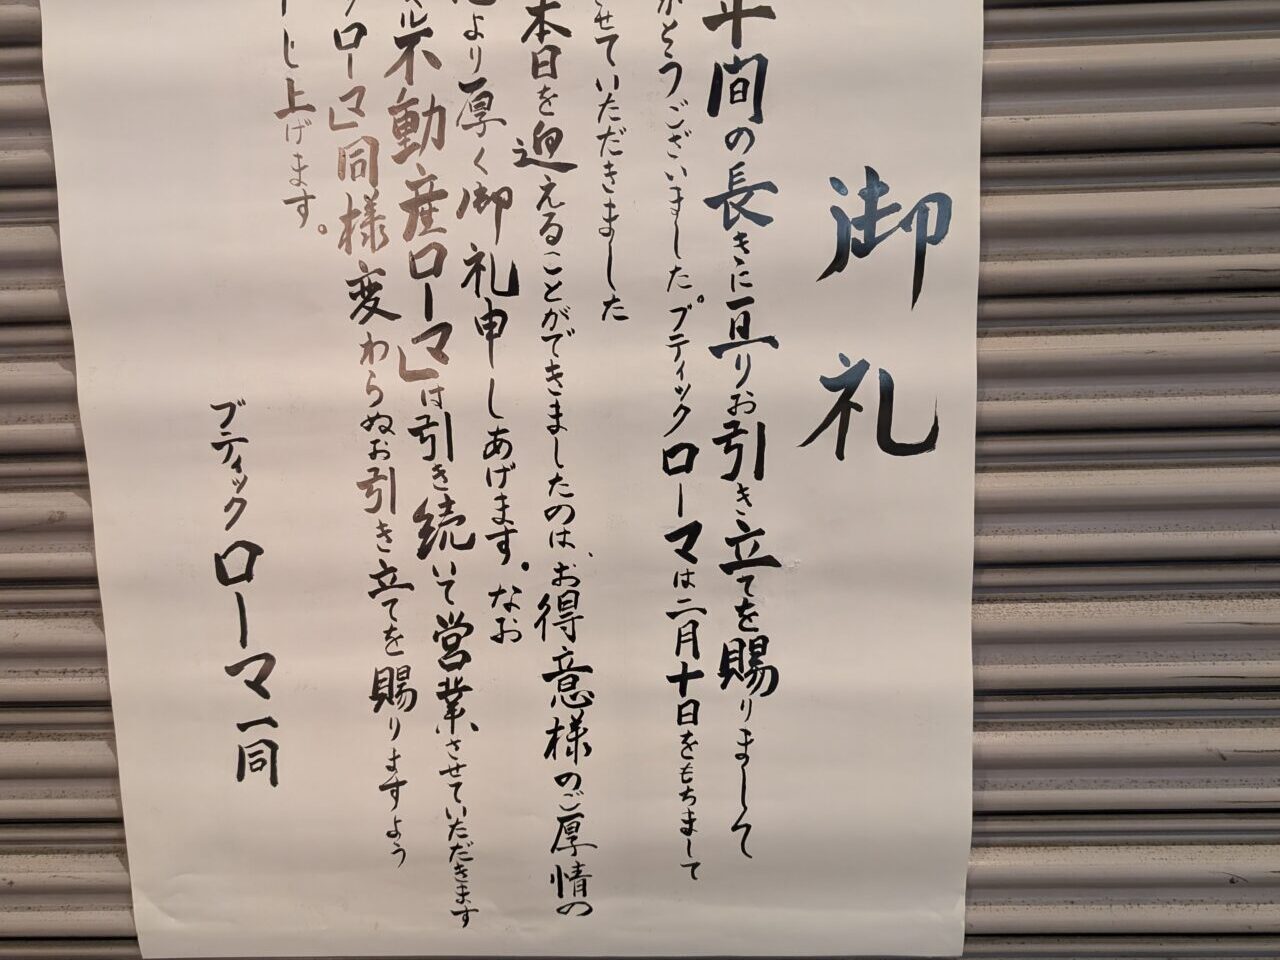 御礼
年間の長きに亘りお引き立てを賜りまして
がとうございました。ブティックローマは二月十日をもちまして
せていただきました
本日を迎えることができましたのは、お得意様のご厚情の
より厚く御礼申しあげます。なお
ル不動産ローマ」は引き続いて営業させていただきます
クローマ」同様変わらぬお引き立てを賜りますよう
し上げます。
ブティックローマ一同